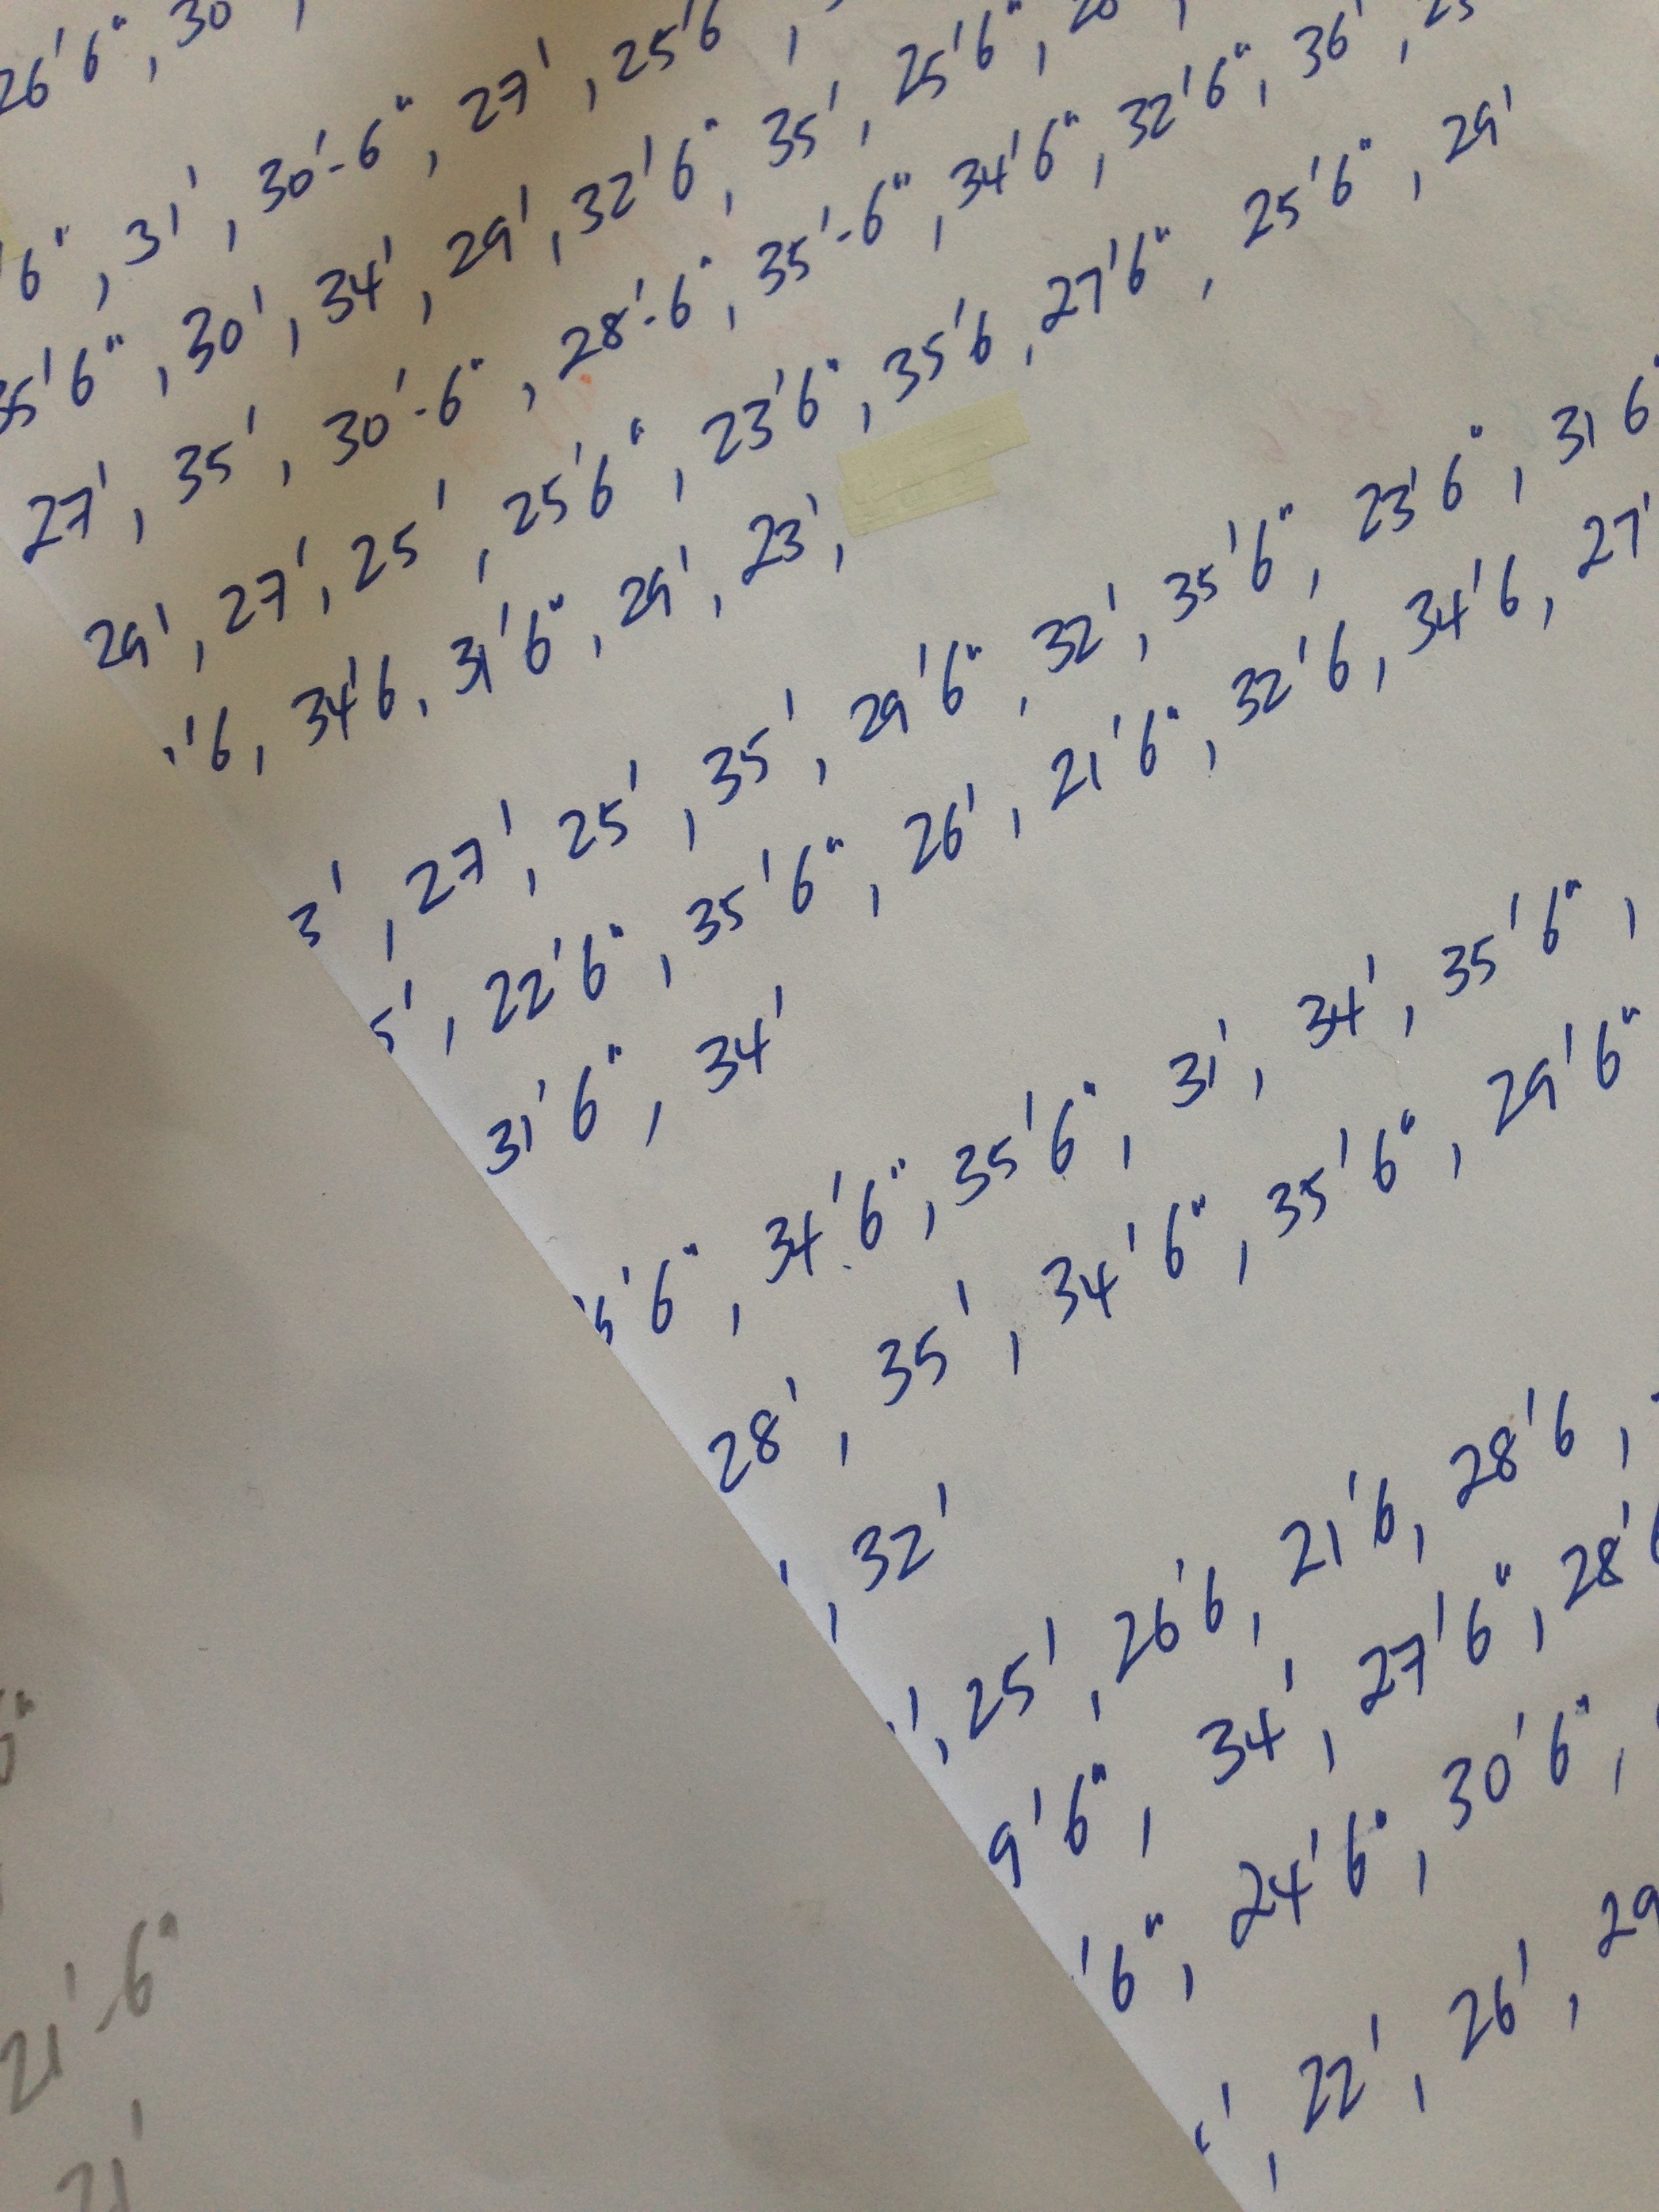 26'6", 30'
'6", 31', 30'-6", 27', 25'6
35'6", 30', 34', 29', 32'6", 35', 25'6",
27', 35', 30'-6", 28'-6", 35'-6", 34'6", 32'6", 36',
29', 27', 25', 25'6", 23'6", 35'6, 27'6", 25'6", 29'
'6, 34'6, 31'6", 29', 23',
3', 27', 25', 35', 29'6", 32', 35'6", 23'6", 31 6
5', 22'6", 35'6", 26', 21'6", 32'6, 34'6, 27'
31'6", 34'
5'6", 34'6", 35'6", 31', 34', 35'6",
28', 35', 34'6", 35'6", 29'6"
, 32'
', 25', 26'6, 21'6, 28'6,
9'6", 34', 27'6", 28'6
'6", 24'6", 30'6",
', 22', 26', 29
21'-6"
21'